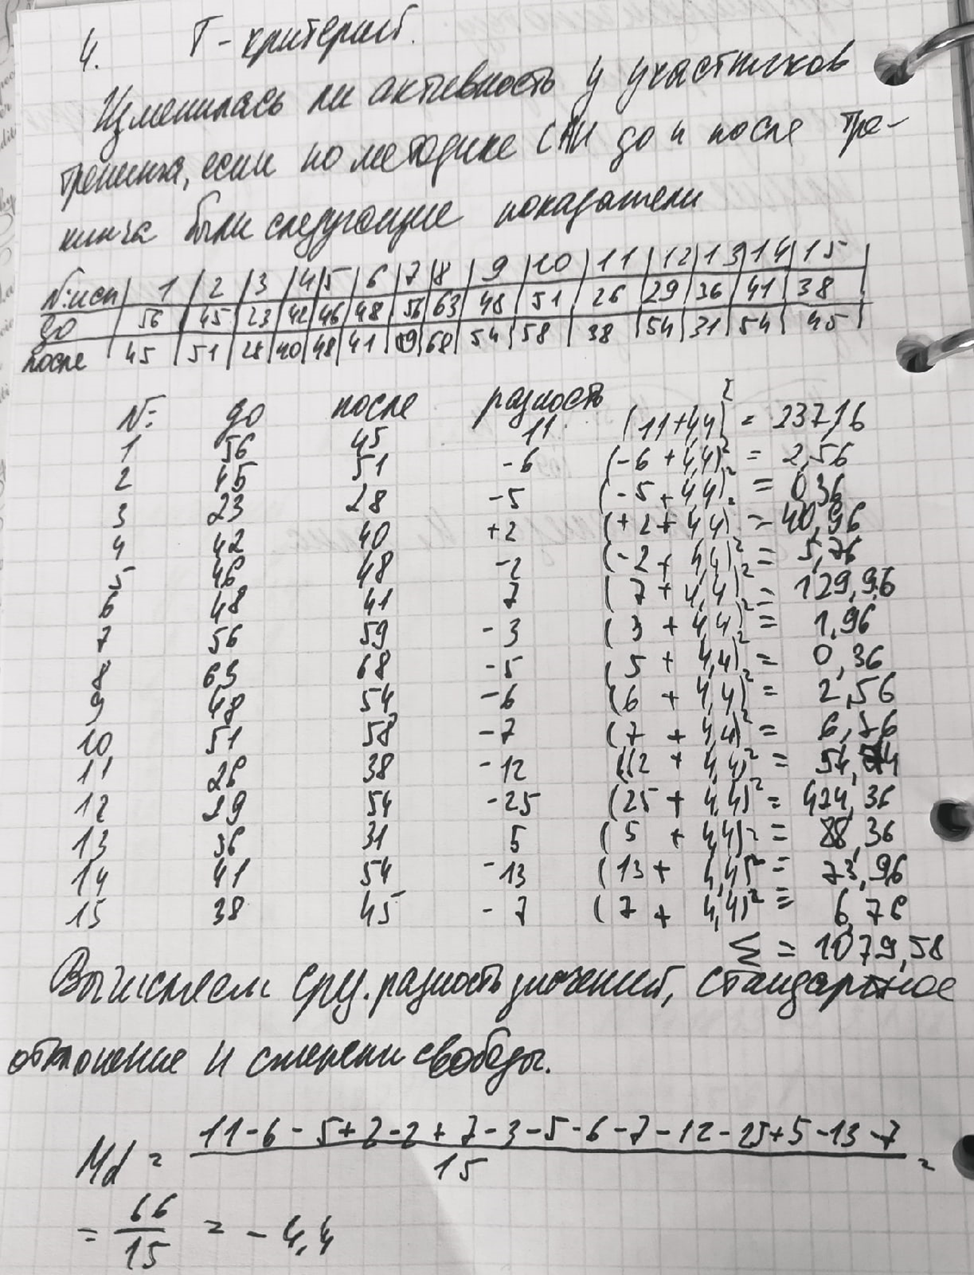 4. T-критерий.
Изменилась ли активность у участников
тренинга, если по методике САН до и после тре-
нинга были следующие показатели
№:исп | 1 | 2 | 3 | 4 | 5 | 6 | 7 | 8 | 9 | 10 | 11 | 12 | 13 | 14 | 15
до | 56 | 45 | 23 | 42 | 46 | 48 | 56 | 63 | 48 | 51 | 26 | 29 | 36 | 41 | 38
после | 45 | 51 | 28 | 40 | 48 | 41 | 59 | 68 | 54 | 58 | 38 | 54 | 31 | 54 | 45
№: до после разность
1 56 45 11 (11+4,4)² = 237,16
2 45 51 -6 (-6 + 4,4)² = 2,56
3 23 28 -5 (-5 + 4,4)² = 0,36
4 42 40 +2 (+2 + 4,4) = 40,96
5 46 48 -2 (-2 + 4,4)² = 5,76
6 48 41 7 (7 + 4,4)² = 129,96
7 56 59 -3 (3 + 4,4)² = 1,96
8 63 68 -5 (5 + 4,4)² = 0,36
9 48 54 -6 (6 + 4,4)² = 2,56
10 51 58 -7 (7 + 4,4)² = 6,76
11 26 38 -12 (12 + 4,4)² =
12 29 54 -25 (25 + 4,4)² = 424,36
13 36 31 5 (5 + 4,4)² = 88,36
14 41 54 -13 (13 + 4,4)² = 73,96
15 38 45 -7 (7 + 4,4)² = 6,76
Σ = 1079,58
Вычисляем сред. разность значений, стандартное
отклонение и степени свободы.
Md = 11-6-5+2-2+7-3-5-6-7-12-25+5-13-7 =
15
= 66 = -4,4
15